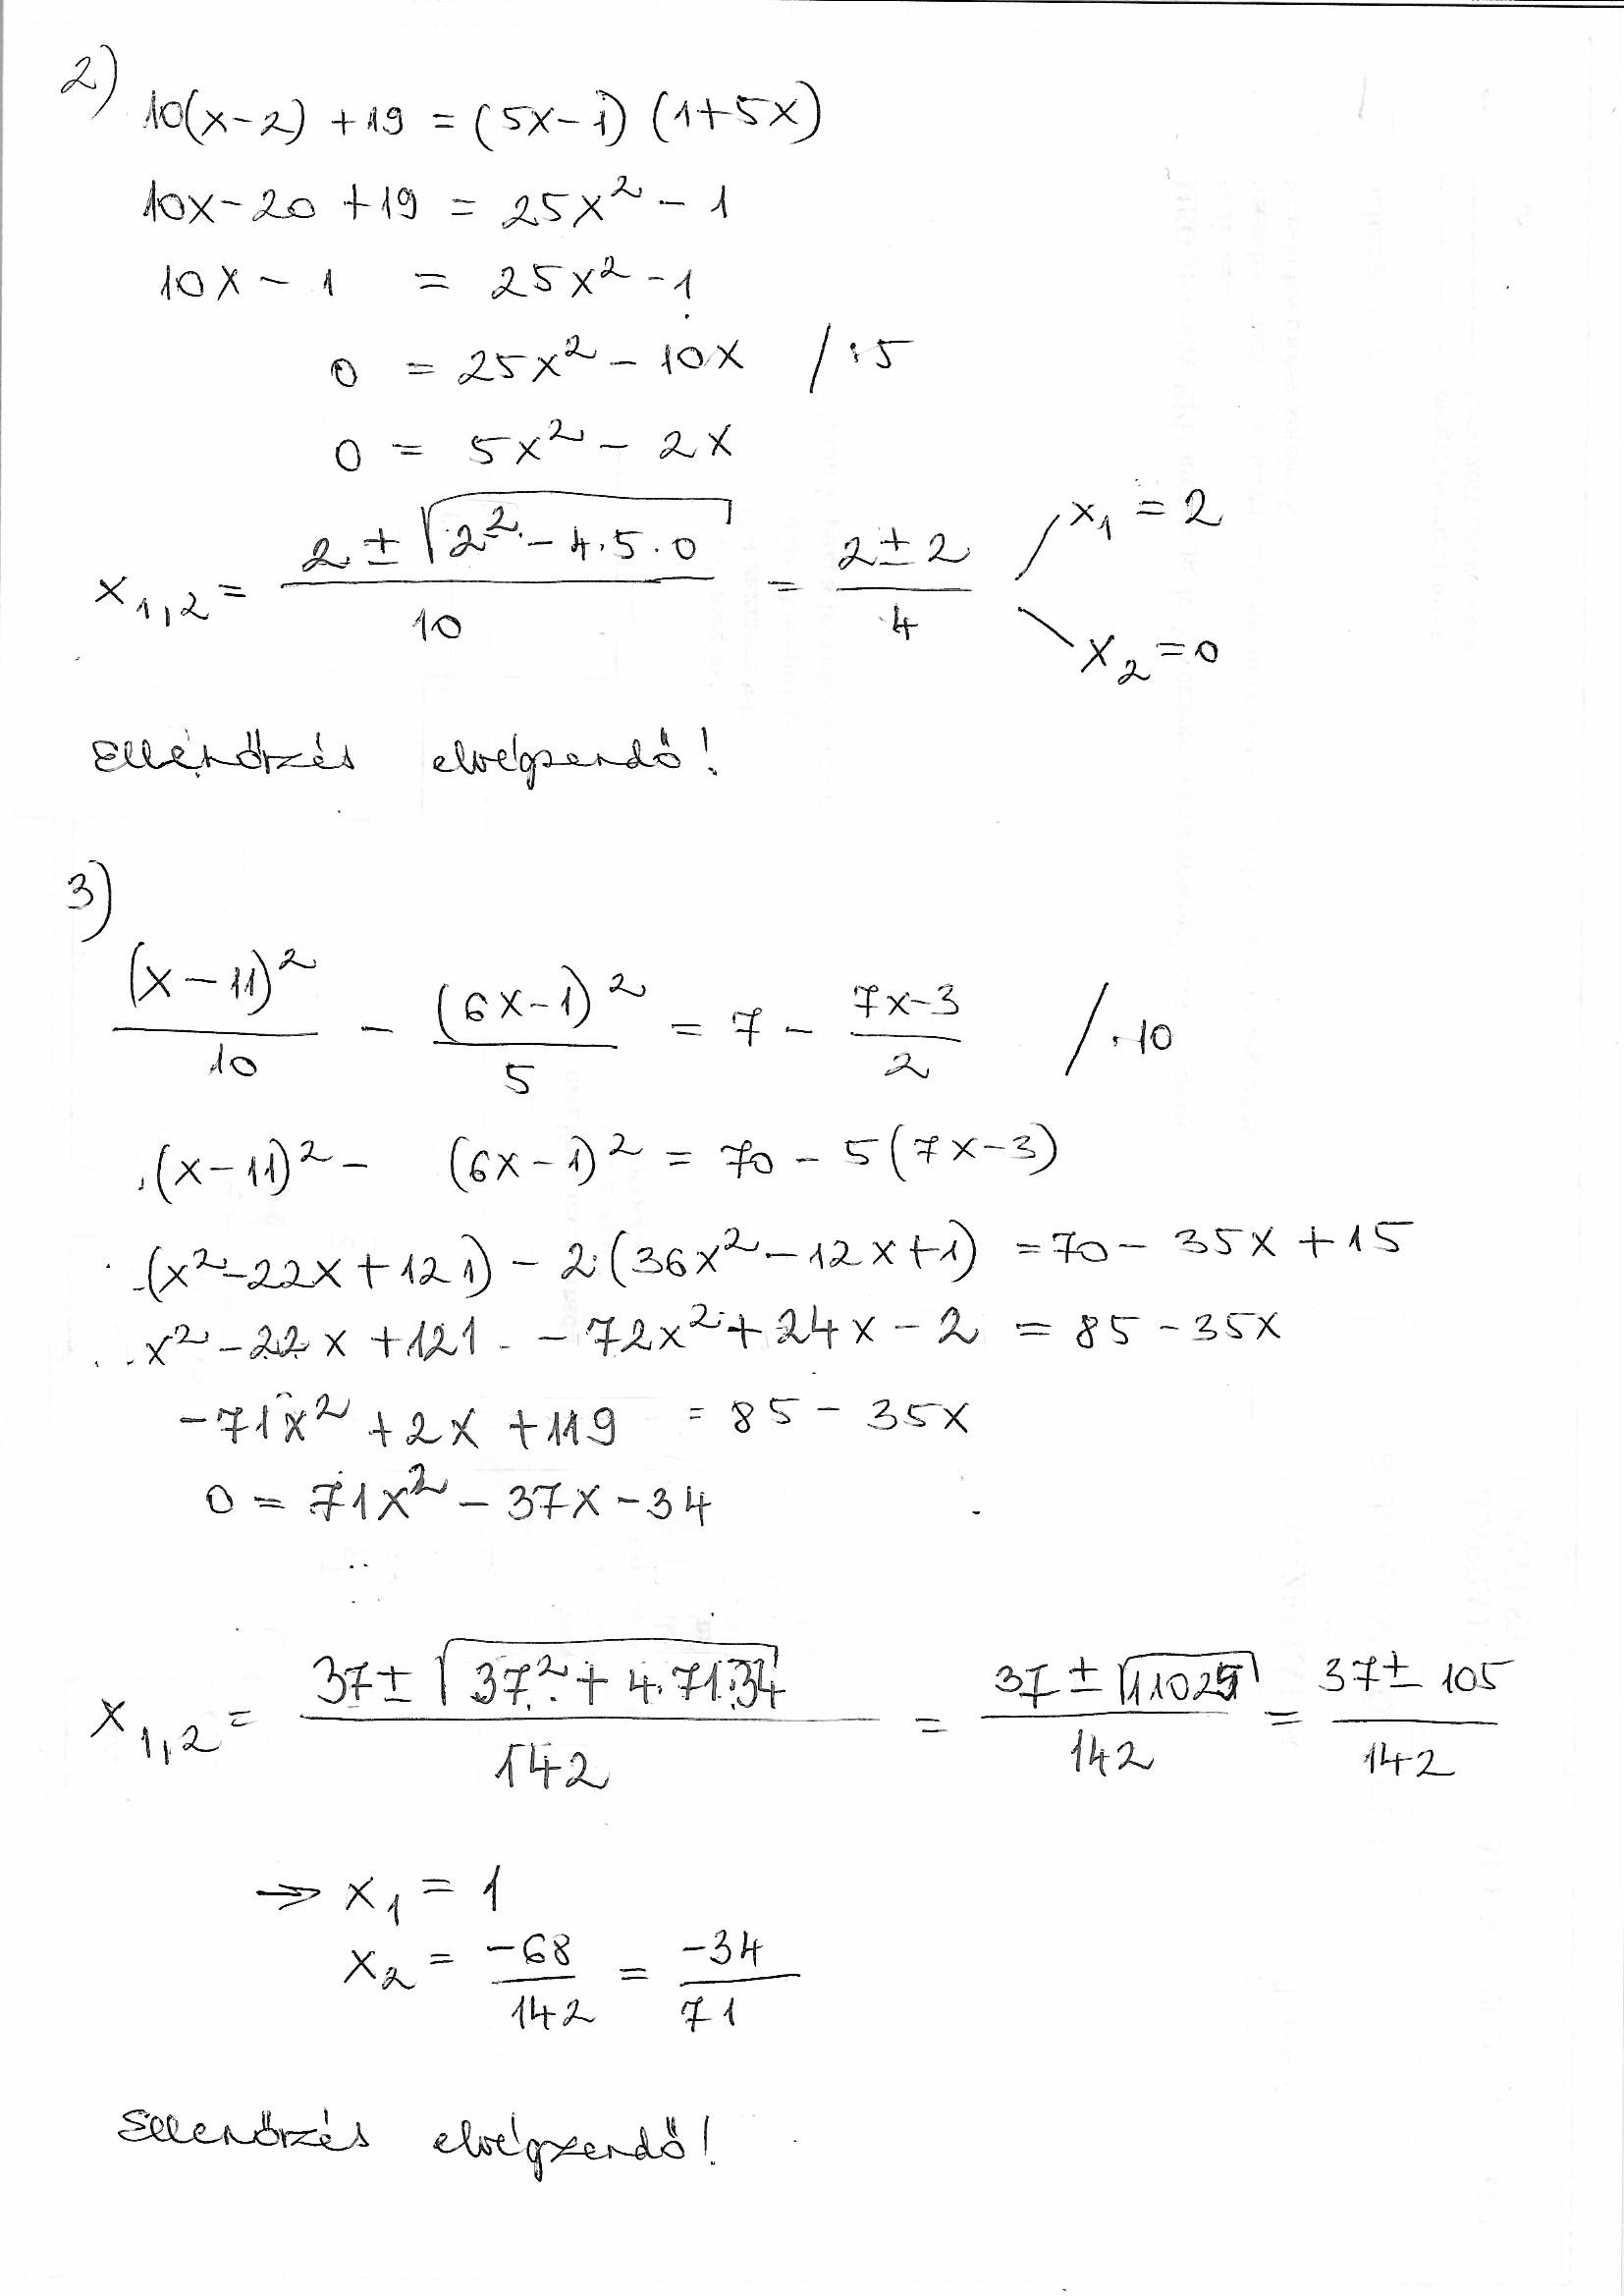 2)
10(x-2) +19 = (5x-1) (1+5x)
10x-20 +19 = 25x² - 1
10x - 1 = 25x² - 1
0 = 25x² - 10x / :5
0 = 5x² - 2x
x₁,₂ = (2 ± √(2² - 4·5·0))/10 = (2 ± 2)/4
x₁ = 2
x₂ = 0
Ellenőrzés elvégzendő!
3)
(x-11)²/10 - (6x-1)²/5 = 7 - (7x-3)/2 / ·10
(x-11)² - (6x-1)² = 70 - 5(7x-3)
(x²-22x+121) - 2·(36x²-12x+1) = 70 - 35x + 15
x² - 22x + 121 - 72x² + 24x - 2 = 85 - 35x
-71x² + 2x + 119 = 85 - 35x
0 = 71x² - 37x - 34
x₁,₂ = (37 ± √(37² + 4·71·34))/142 = (37 ± √11025)/142 = (37 ± 105)/142
→ x₁ = 1
x₂ = -68/142 = -34/71
Ellenőrzés elvégzendő!